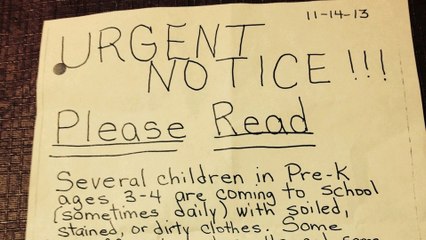 11-14-13
URGENT
NOTICE!!!
Please Read
Several children in Pre-K
ages 3-4 are coming to school
(sometimes daily) with soiled,
stained, or dirty clothes. Some